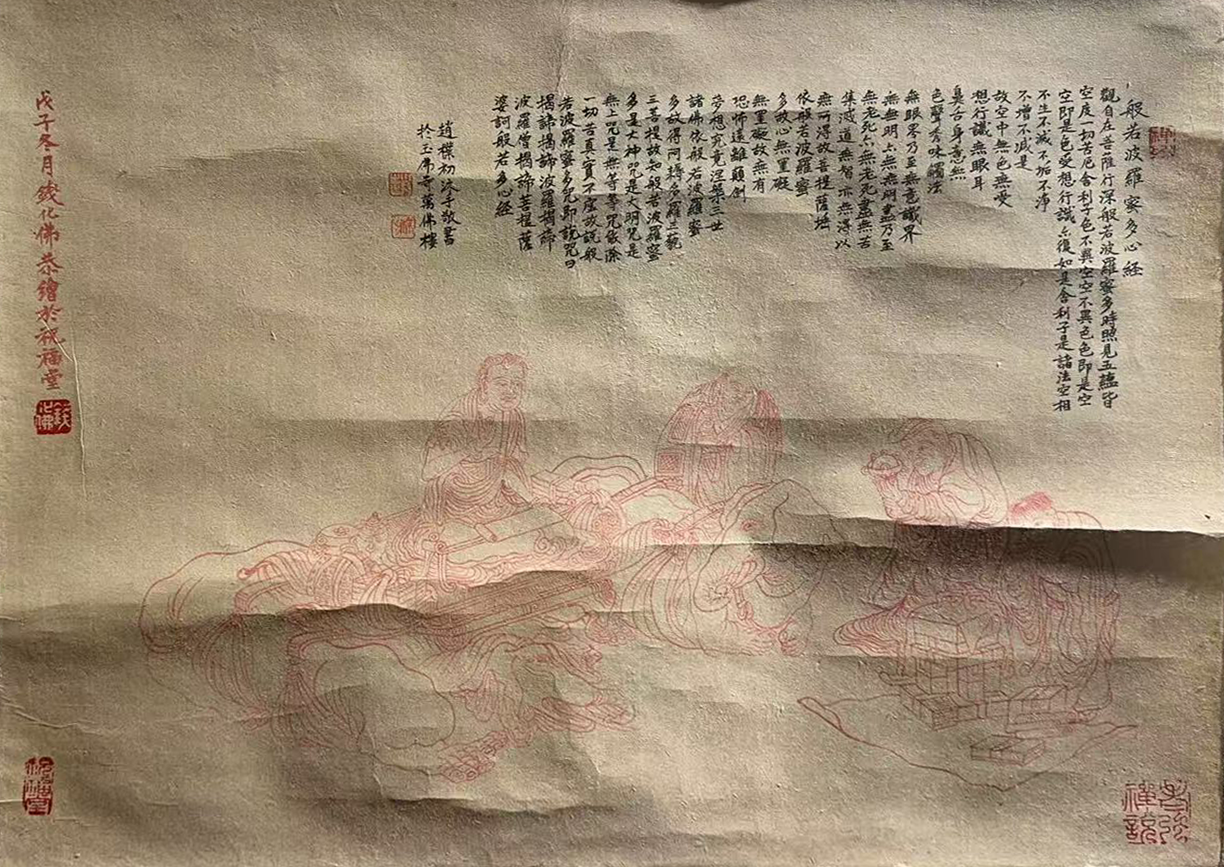 般若波羅蜜多心経
觀自在菩薩行深般若波羅蜜多時照見五蘊皆
空度一切苦厄舍利子色不異空空不異色色即是空
空即是色受想行識亦復如是舍利子是諸法空相
不生不滅不垢不淨
不增不減是
故空中無色無受
想行識無眼耳
鼻舌身意無
色聲香味觸法
無眼界乃至無意識界
無無明亦無無明盡乃至
無老死亦無老死盡無苦
集滅道無智亦無得以
無所得故菩提薩埵
依般若波羅蜜
多故心無罣礙
無罣礙故無有
恐怖遠離顛倒
夢想究竟涅槃三世
諸佛依般若波羅蜜
多故得阿耨多羅三藐
三菩提故知般若波羅蜜
多是大神咒是大明咒是
無上咒是無等等咒能除
一切苦真實不虛故說般
若波羅蜜多咒即說咒曰
揭諦揭諦波羅揭諦
波羅僧揭諦菩提薩
婆訶般若多心経
趙樸初沐手敬書
於玉佛寺萬佛樓
戊子冬月錢化佛恭繪於祝福堂
錢化佛